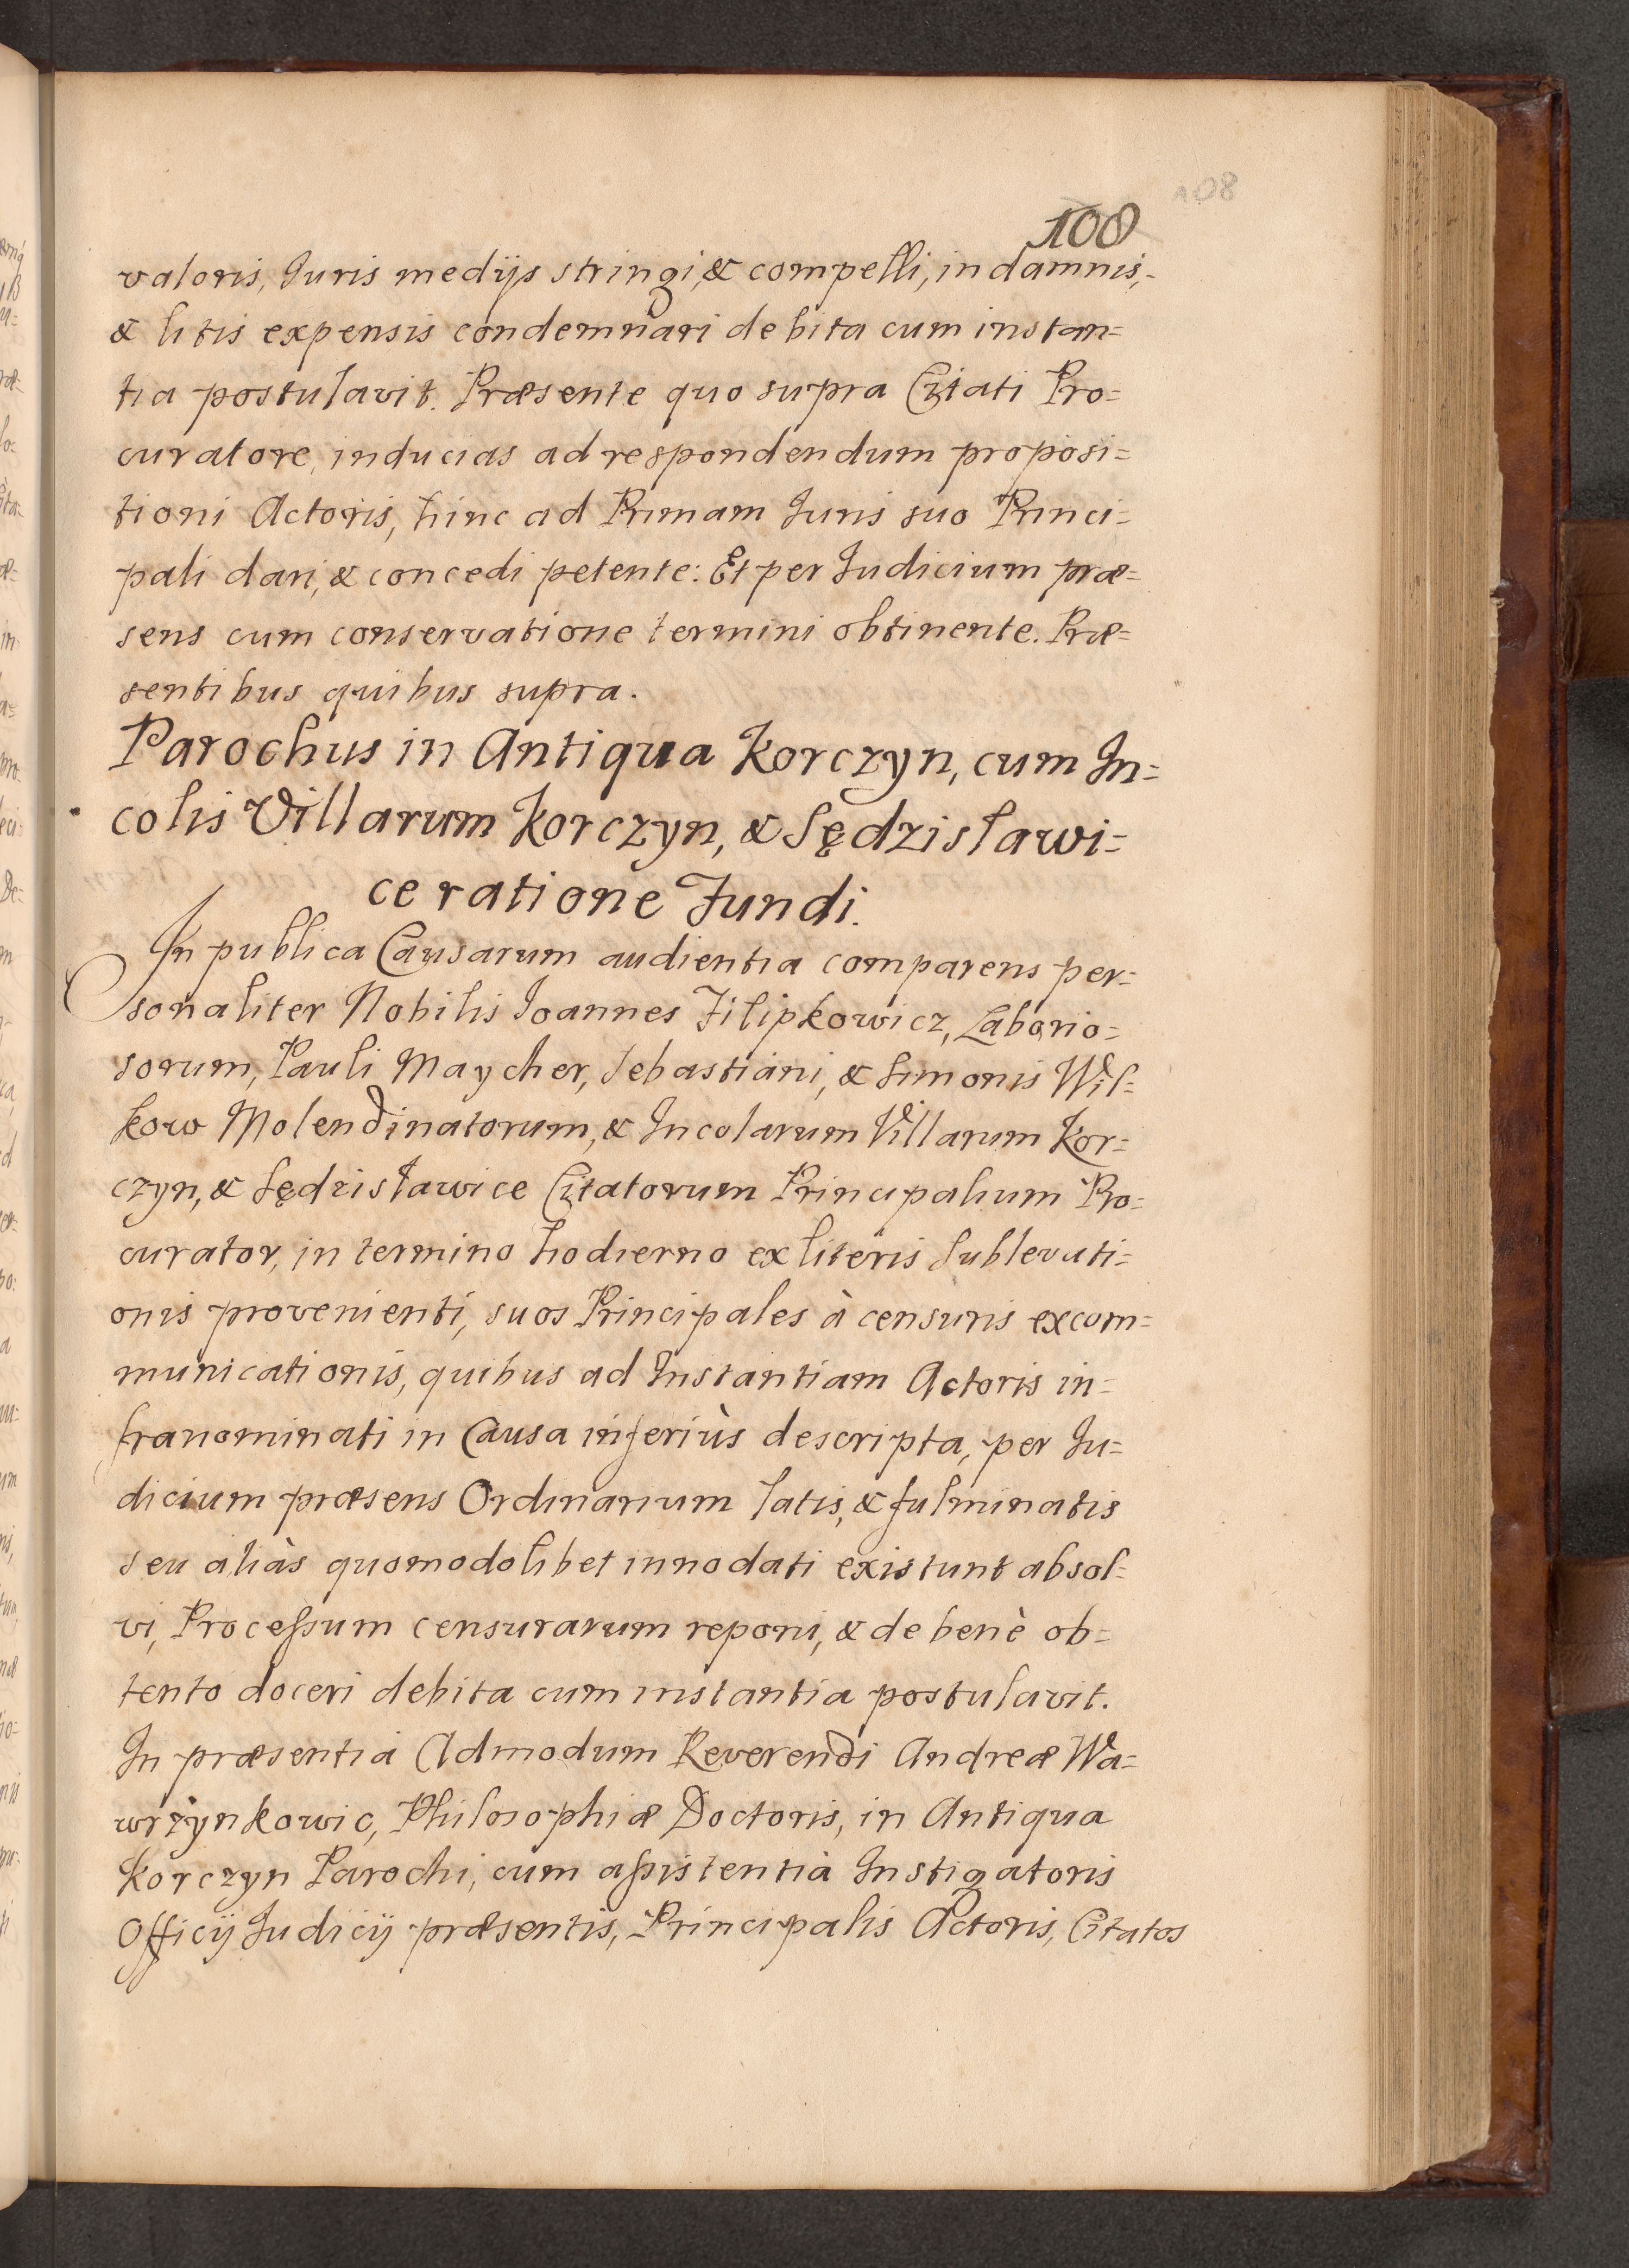 108
108
valoris, Iuris medijs stringi, & compelli, in damnis,
& litis expensis condemnari debita cum instan=
tia postulavit. Præsente quo supra Citati Pro=
curatore, inducias ad respondendum proposi=
tioni Actoris, hinc ad Primam Iuris suo Princi=
pali dari, & concedi petente: Et per Iudicium præ=
sens cum conservatione termini obtinente. Præ=
sentibus quibus supra.
Parochus in Antiqua Korczyn, cum In=
colis Villarum Korczyn, & Sędzisławi=
ce ratione Fundi.
In publica Causarum audientia comparens per=
sonaliter Nobilis Ioannes Filipkowicz, Laborio=
sorum, Pauli Maycher, Sebastiani, & Simonis Wil=
kow Molendinatorum, & Incolarum Villarum Kor=
czyn, & Sędzisławice Citatorum Principalium Pro=
curator, in termino hodierno ex literis Sublevati=
onis provenienti, suos Principales à censuris excom=
municationis, quibus ad Instantiam Actoris in=
franominati in Causa inferiùs descripta, per Iu=
dicium præsens Ordinarium latis, & fulminatis
seu aliàs quomodolibet innodati existunt absol=
vi, Processum censurarum reponi, & de benè ob=
tento doceri debita cum instantia postulavit.
In præsentia Admodum Reverendi Andreæ Wa=
wrzynkowic, Philosophiæ Doctoris, in Antiqua
Korczyn Parochi, cum assistentia Instigatoris
Officij Iudicij præsentis, Principalis Actoris, Citatos